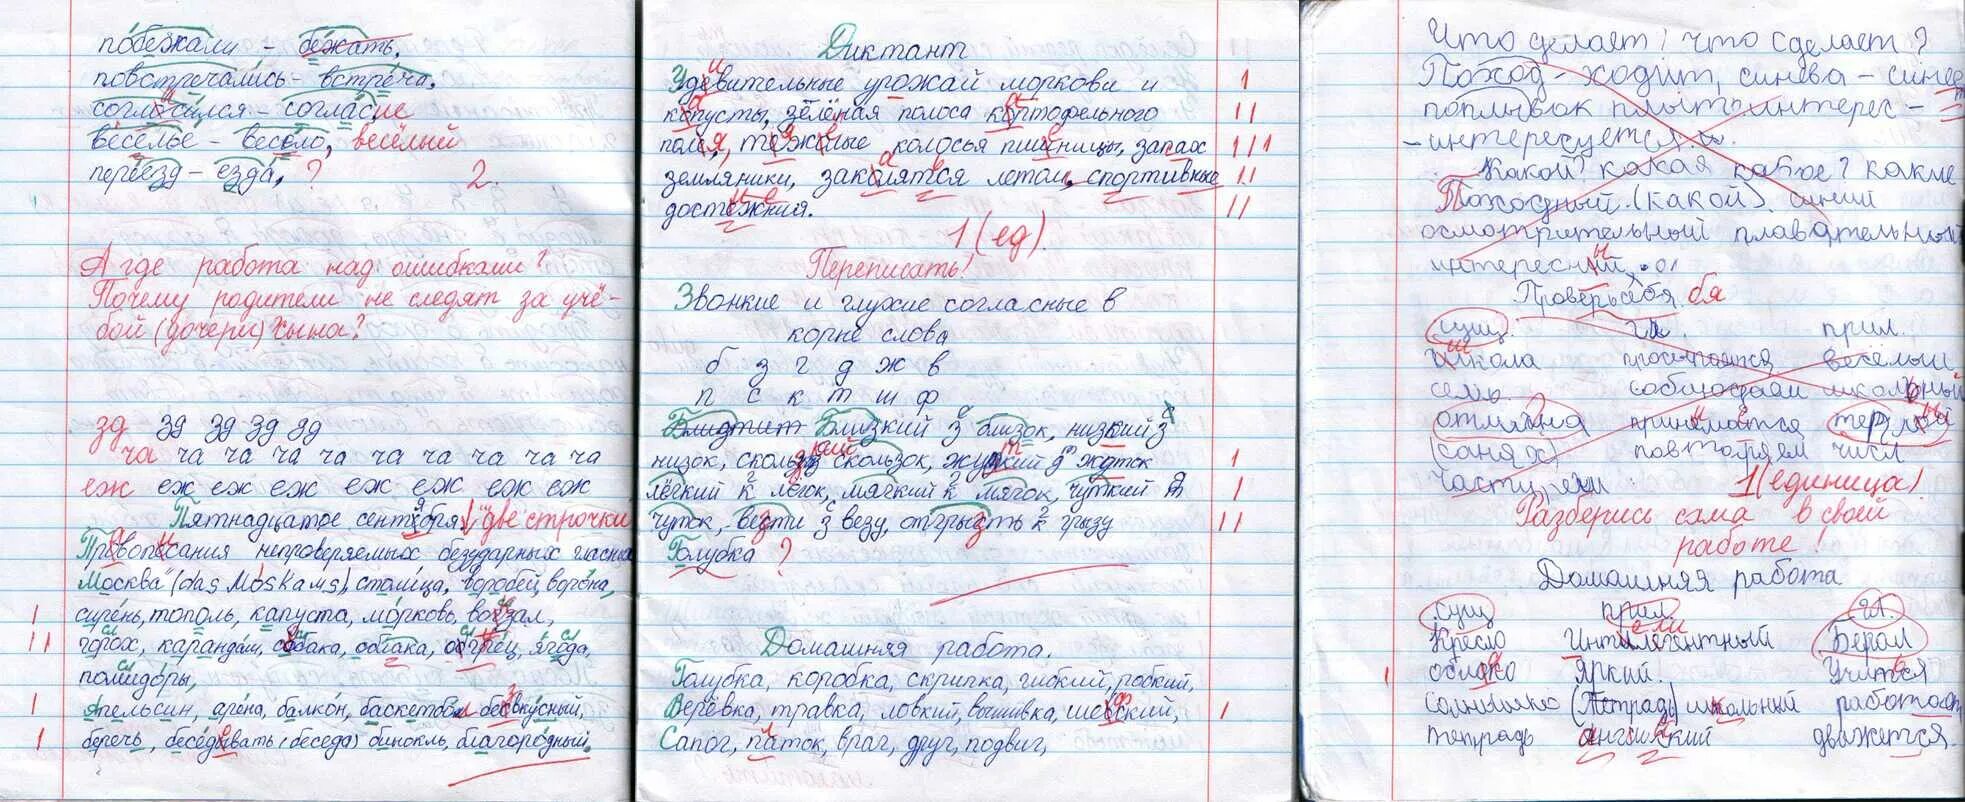 побежали - бежать,
повстречались - встреча,
согласился - согласие
веселье - весело, весёлый
переезд - езда, ? 2.
А где работа над ошибками?
Почему родители не следят за учё-
бой (дочери) сына?
зд зд зд зд зд
ча ча ча ча ча ча ча ча ча ча
еж еж еж еж еж еж еж еж
Пятнадцатое сентября две строчки
Правописания непроверяемых безударных гласных
Москва (das Moskaws), столица, воробей, ворона,
сирень, тополь, капуста, морковь, вокзал,
горох, карандаш, собака, огурец, ягода,
помидоры,
Апельсин, арена, балкон, баскетбол безвкусный,
беречь, беседывать (беседа) бинокль, благородный.
Диктант
Удевительные урожай моркови и
копусты, зелёная полоса кортофельного
поля, колосья пшеницы, запах
земляники, летом, спортивные
достежния.
1 (ед).
Переписать!
Звонкие и глухие согласные в
корне слова
б з г д ж в
п с к т ш ф
Близкий з близок, низкий з
низок, скользок, жидкий д жидок
лёгкий к лёгок, мягкий к мягок, чуткий т
чуток, везти з везу, отгрызть з грызу
Голубка ?
Домашняя работа.
Голубка, коробка, скрипка, гибкий, робкий,
Верёвка, травка, ловкий, вышивка,
Сапог, паток, враг, друг, подвиг,
Что делает? что сделает?
Поход - ходит, синева - синеет
поплывок интерес -
- интересуется
Какой? какая какое? какие
Походный (какой) синий
осмотрительный плавательный
интересный
Проверь себя бя
сущ. гл. прил.
школа просыпаются весёлый
семь школьный
принимается
повторяем числ
1 (единица)!
Разберись сама в своей
работе!
Домашняя работа
сущ прил гл.
Кресло Интилегентный Берал
облако Яркий. Учиться
(Тетрадь) школьный работает
тетрадь английский движется